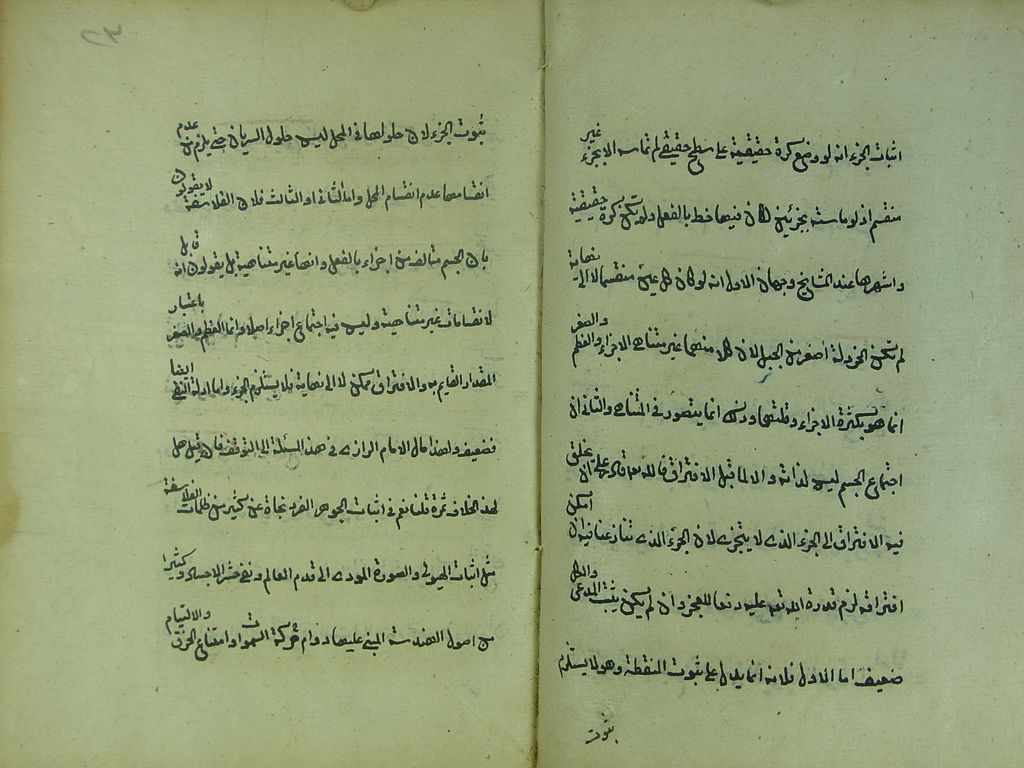 اثبات الجزء انه لو وضع كرة حقيقية على سطح حقيقي لم تماسه الا بجزء غير
منقسم اذ لو ماسته بجزئين لكان فيها خط بالفعل ولم تكن كرة حقيقية
واشهرها عند المشايخ وجهان الاول انه لو كان كل عين منقسما لا الى نهاية
لم تكن الخردلة اصغر من الجبل لان كلا منهما غير متناهى الاجزاء والعظم والصغر
انما هو بكثرة الاجزاء وقلتها وذلك انما يتصور فى المتناهى والثانى ان
اجتماع الجسم ليس لذاته والا لما قبل الافتراق فالله تعه قادر على ان يخلق
فيه الافتراق الى الجزء الذى لا يتجزى لان الجزء الذى تنازعنا فيه ان امكن
افتراقه لزم قدرة الله تعه عليه دفعا للعجز وان لم يكن يثبت المدعى والكل
ضعيف اما الاول فلانه انما يدل على ثبوت النقطة وهو لا يستلزم
ثبوت
٢٣
ثبوت الجزء لان حلولها فى المحل ليس حلول السريان حتى يلزم من عدم
انقسامها عدم انقسام المحل واما الثانى او الثالث فلان الفلاسفة لا يقولون
بان الجسم متألف من اجزاء بالفعل وانها غير متناهية بل يقولون انه قابل
لانقسامات غير متناهية وليس فيه اجتماع اجزاء اصلا وانما العظم والصغر باعتبار
المقدار القايم به والافتراق ممكن لا الى نهاية فلا يستلزم الجزء واما ادلة النفى ايضا
فضعيف ولهذا مال الامام الرازى فى هذه المسئلة الى التوقف فان قيل هل
لهذا الخلاف ثمرة قلنا نعم فى اثبات الجوهر الفرد نجاة عن كثير من ظلمات الفلاسفة
مثل اثبات الهيولى والصورة المودى الى قدم العالم ونفى حشر الاجساد وكثيرا
من اصول الهندسة المبنى عليها دوام حركة السموات وامتناع الخرق والالتيام